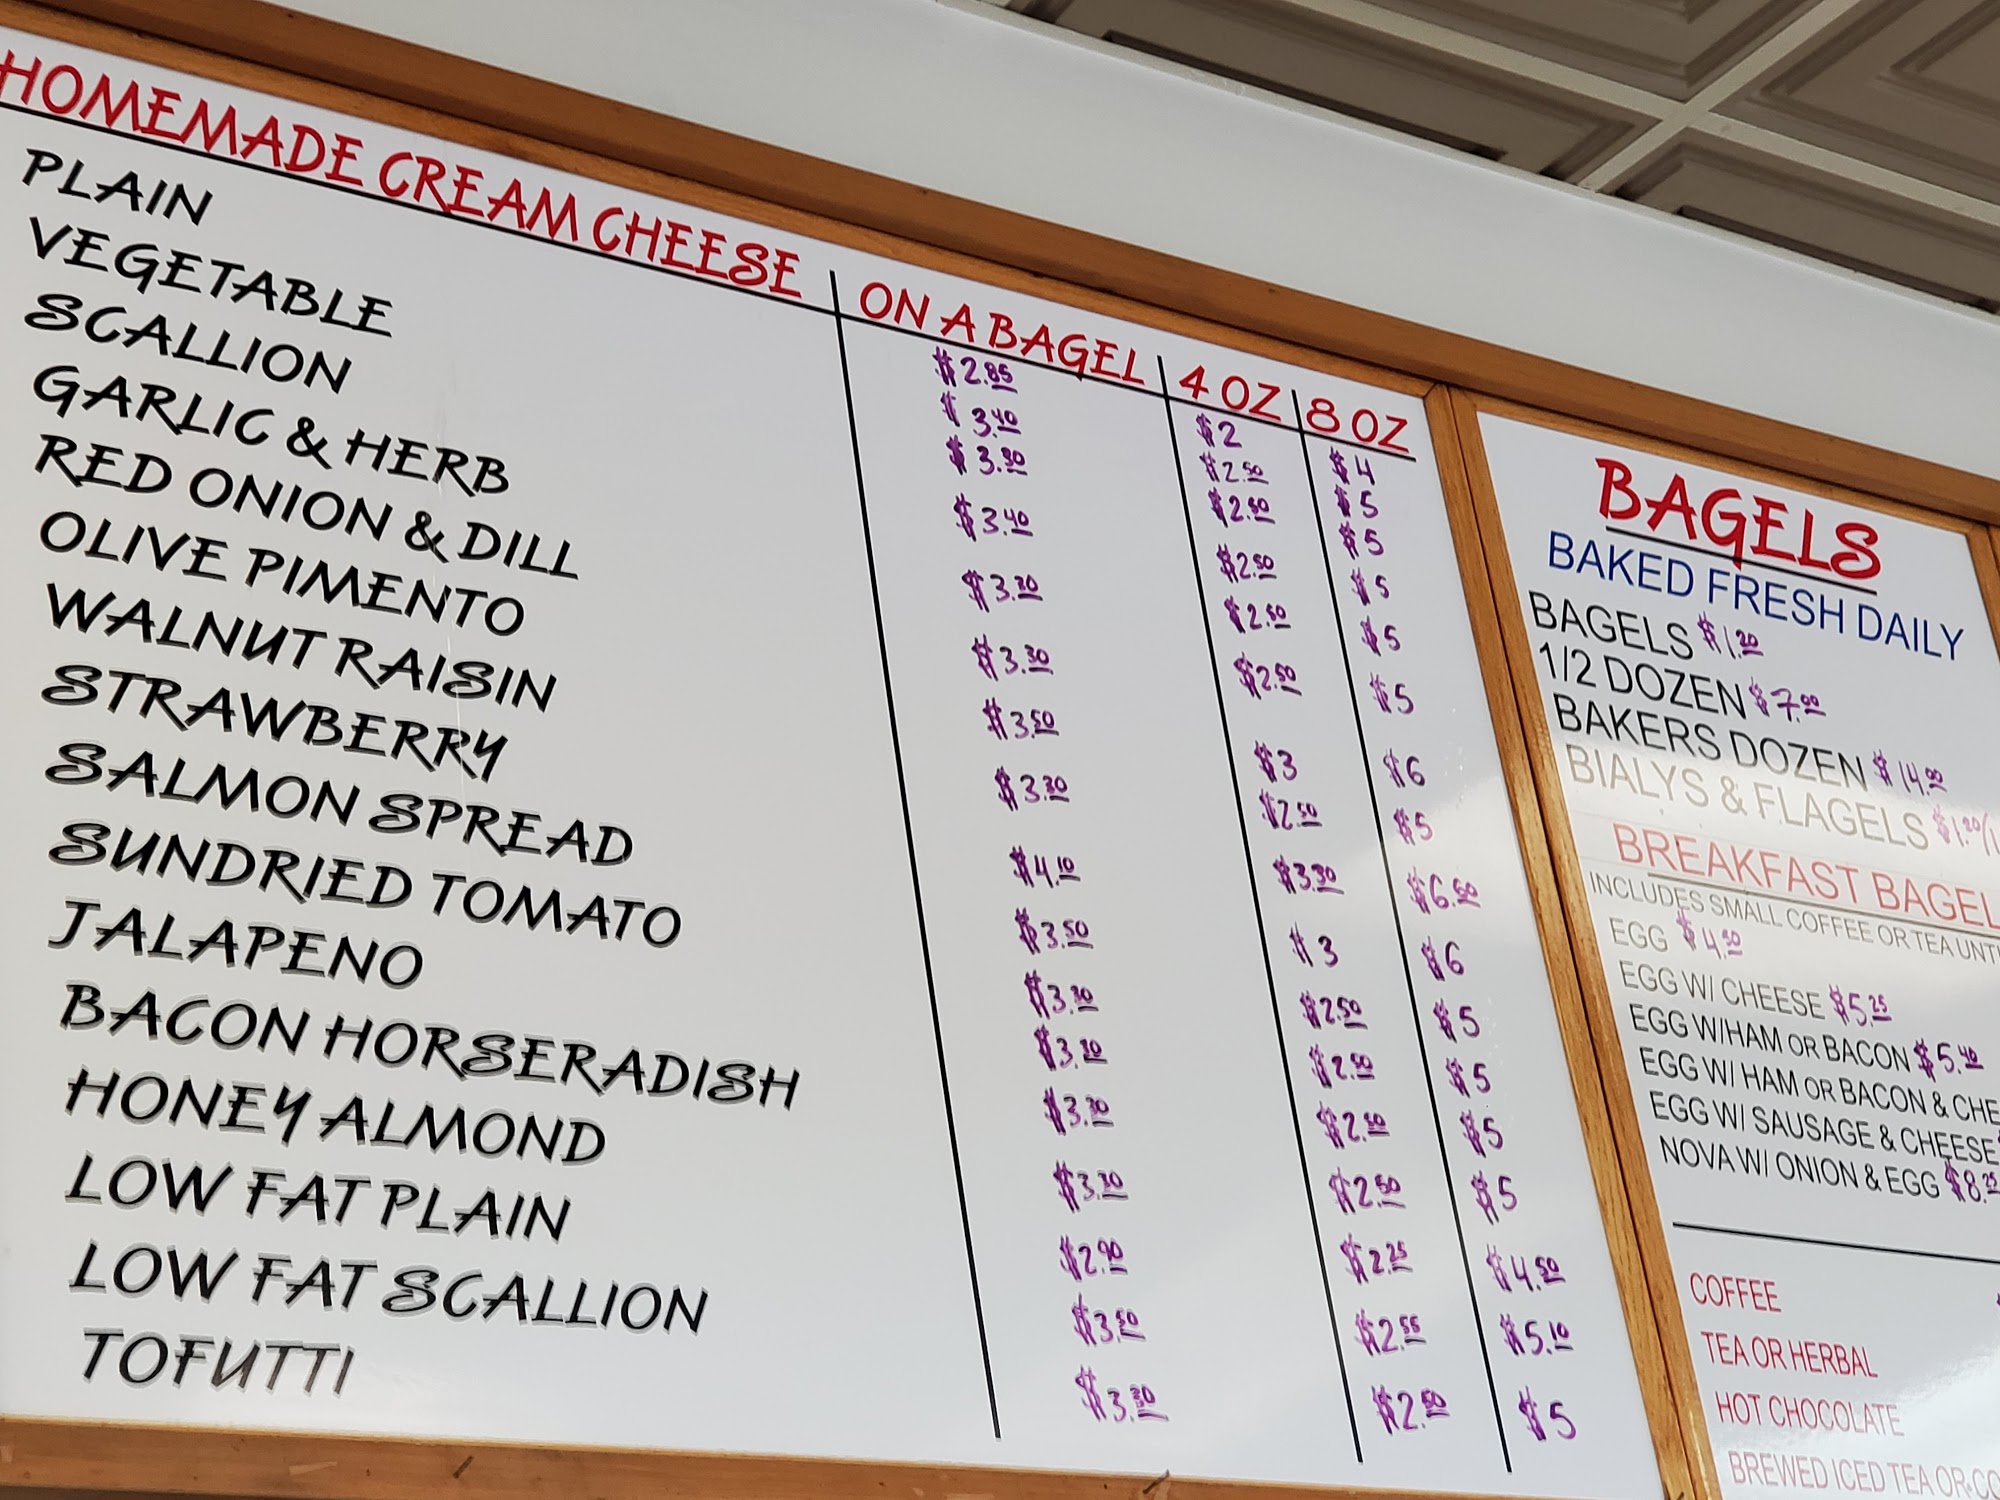 HOMEMADE CREAM CHEESE
PLAIN
VEGETABLE
SCALLION
GARLIC & HERB
RED ONION & DILL
OLIVE PIMENTO
WALNUT RAISIN
STRAWBERRY
SALMON SPREAD
SUNDRIED TOMATO
JALAPENO
BACON HORSERADISH
HONEY ALMOND
LOW FAT PLAIN
LOW FAT SCALLION
TOFUTTI
ON A BAGEL
$2.85
$3.40
$3.30
$3.40
$3.30
$3.30
$3.50
$3.30
$4.10
$3.50
$3.30
$3.30
$3.30
$3.30
$2.90
$3.50
$3.30
4 OZ
$2
$2.50
$2.50
$2.50
$2.50
$2.50
$3
$2.50
$3.30
$3
$2.50
$2.50
$2.50
$2.50
$2.25
$2.55
$2.50
8 OZ
$4
$5
$5
$5
$5
$5
$6
$5
$6.50
$6
$5
$5
$5
$5
$4.50
$5.10
$5
BAGELS
BAKED FRESH DAILY
BAGELS $1.20
1/2 DOZEN $7.00
BAKERS DOZEN $14.00
BIALYS & FLAGELS $1.20/1
BREAKFAST BAGEL
INCLUDES SMALL COFFEE OR TEA UNTI
EGG $4.50
EGG W/ CHEESE $5.25
EGG W/HAM OR BACON $5.40
EGG W/ HAM OR BACON & CHE
EGG W/ SAUSAGE & CHEESE
NOVA W/ ONION & EGG $8.25
COFFEE
TEA OR HERBAL
HOT CHOCOLATE
BREWED ICED TEA OR CO